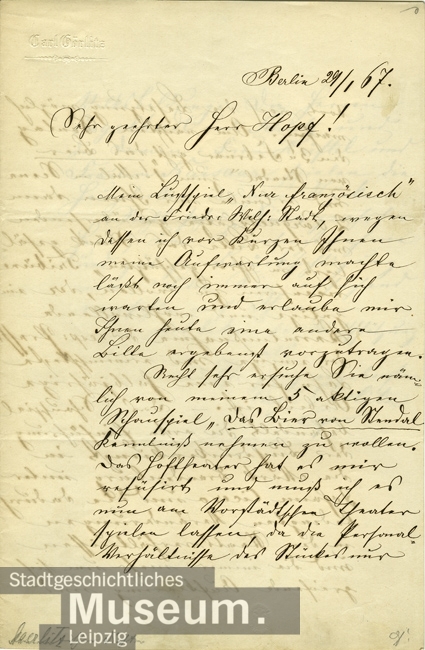 Carl Görlitz
Berlin 29/1 67.
Sehr geehrter Herr Hopf!
Mein Lustspiel „Nur französisch"
an der Friedr: Wilh: Stadt, wegen
dessen ich vor Kurzem Ihnen
meine Aufwartung machte
läßt noch immer auf sich
warten und erlaube mir
Ihnen heute eine andere
Bitte ergebenst vorzutragen.
Recht sehr ersuche Sie näm-
lich von meinem 5 aktigen
Schauspiel „Das Bier von Stendal
Kenntniß nehmen zu wollen.
Das Hoftheater hat es mir
refüsirt und muß ich es
nun am Vorstädtschen Theater
spielen lassen, da die Personal-
Verhältnisse des Stückes nur
Stadtgeschichtliches
Museum.
Leipzig